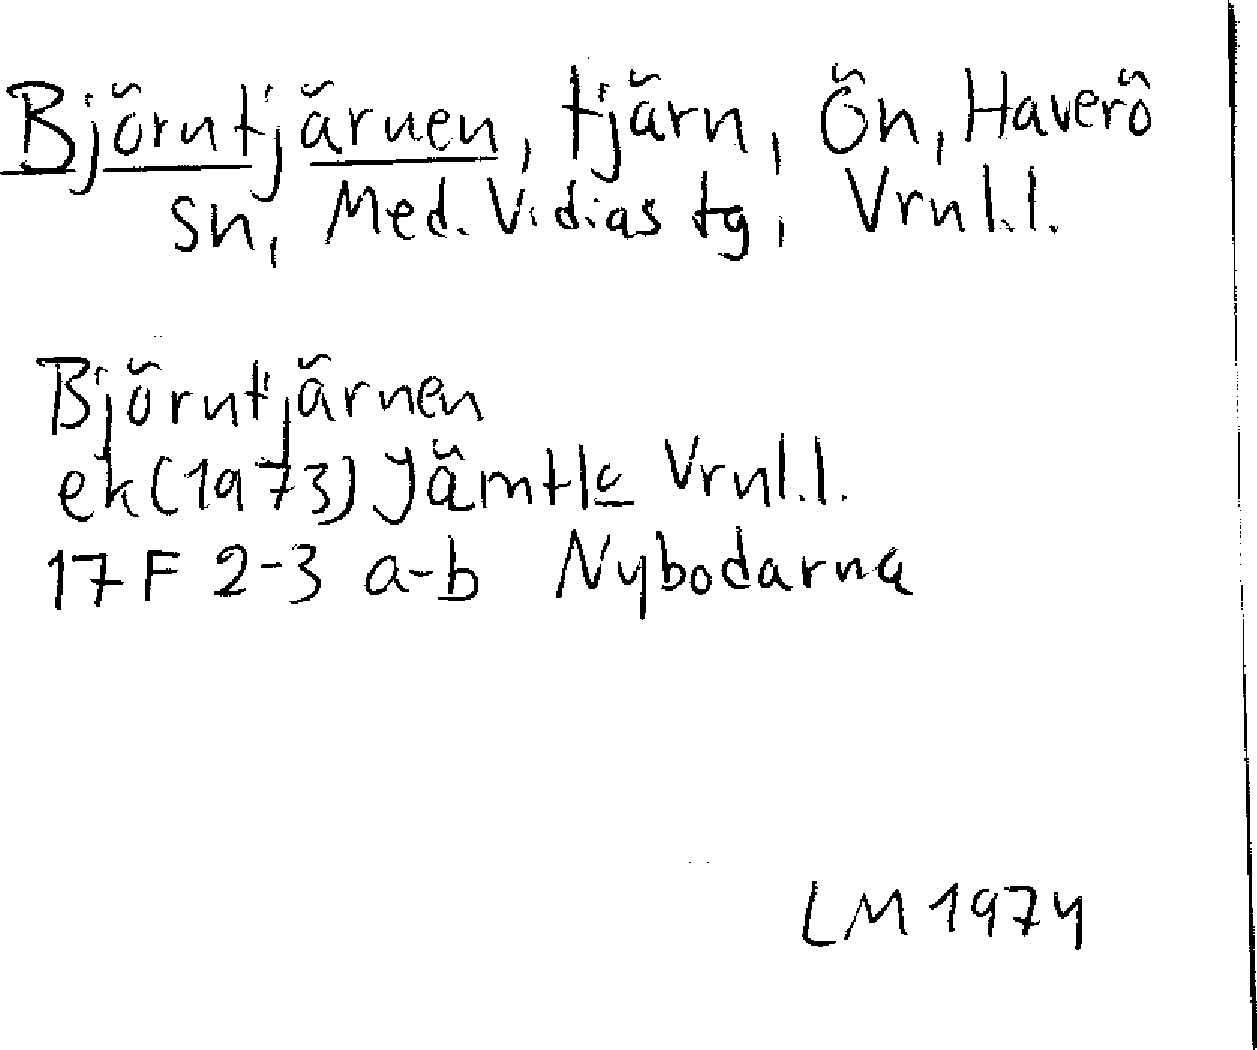 Björntjärnen, tjärn, Ön, Haverö
sn, Med. Vidias tg, Vrnl.l.
Björntjärnen
ek(1973) Jämtlc Vrnl.l.
17 F 2-3 a-b Nybodarna
LM 1974